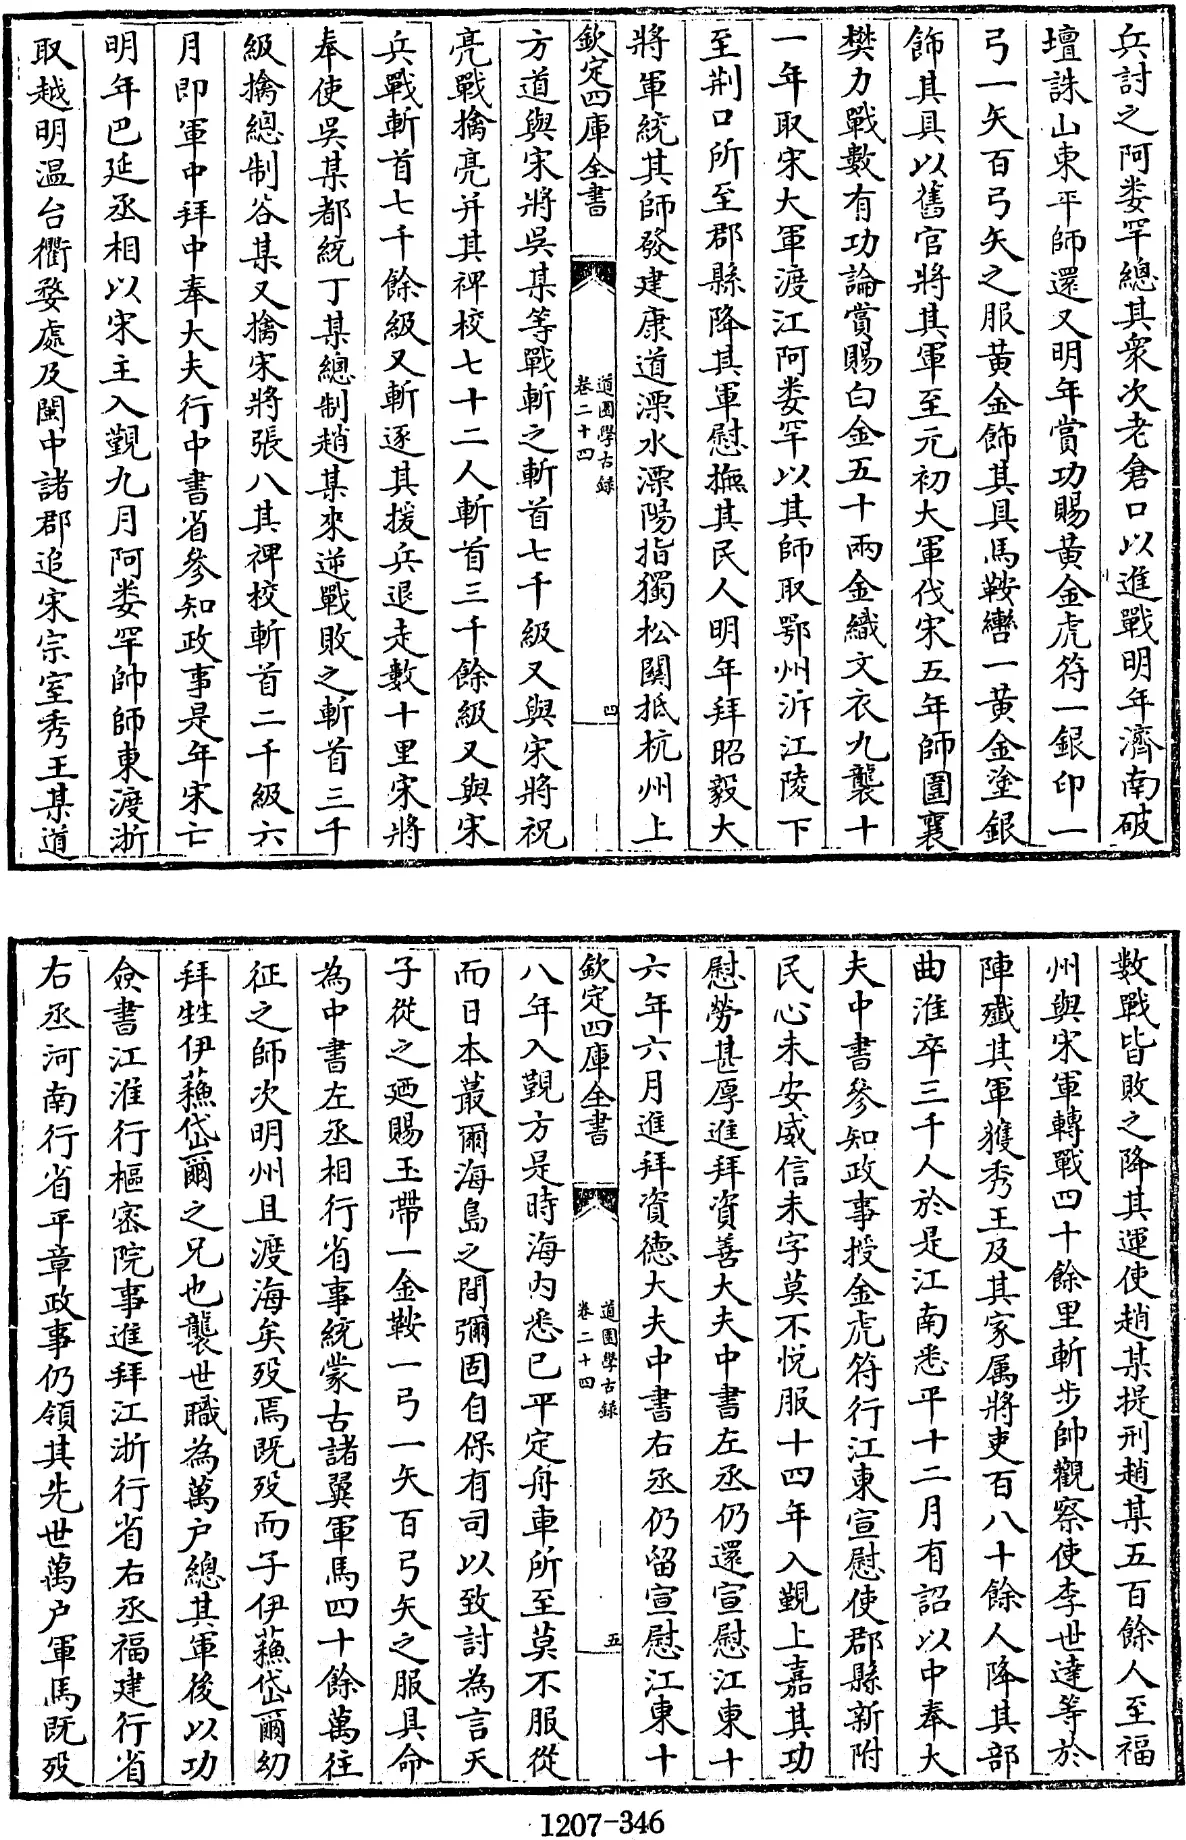 兵討之阿婁罕總其衆次老倉口以進戰明年濟南破
壇誅山東平師還又明年賞功賜黄金虎符一銀印一
弓一矢百弓矢之服黄金飾其具馬鞍轡一黄金塗銀
飾其具以舊官將其軍至元初大軍伐宋五年師圍襄
樊力戰數有功論賞賜白金五十兩金織文衣九襲十
一年取宋大軍渡江阿婁罕以其師取鄂州泝江陵下
至荆口所至郡縣降其軍慰撫其民人明年拜昭毅大
將軍統其師發建康道溧水溧陽指獨松關抵杭州上
欽定四庫全書
道園學古録
卷二十四
四
方道與宋將吳某等戰斬之斬首七千級又與宋將祝
亮戰擒亮并其裨校七十二人斬首三千餘級又與宋
兵戰斬首七千餘級又斬逐其援兵退走數十里宋將
奉使吳某都統丁某總制趙某來逆戰敗之斬首三千
級擒總制谷某又擒宋將張八其裨校斬首二千級六
月即軍中拜中奉大夫行中書省參知政事是年宋亡
明年巴延丞相以宋主入覲九月阿婁罕帥師東渡浙
取越明温台衢婺處及閩中諸郡追宋宗室秀王某道
數戰皆敗之降其運使趙某提刑趙某五百餘人至福
州與宋軍轉戰四十餘里斬步帥觀察使李世達等於
陣殲其軍獲秀王及其家属將吏百八十餘人降其部
曲淮卒三千人於是江南悉平十二月有詔以中奉大
夫中書參知政事授金虎符行江東宣慰使郡縣新附
民心未安威信未孚莫不悦服十四年入覲上嘉其功
慰勞甚厚進拜資善大夫中書左丞仍還宣慰江東十
六年六月進拜資德大夫中書右丞仍留宣慰江東十
欽定四庫全書
道園學古録
卷二十四
五
八年入覲方是時海内悉已平定舟車所至莫不服從
而日本蕞爾海島之間彌固自保有司以致討為言天
子從之廼賜玉帶一金鞍一弓一矢百弓矢之服具命
為中書左丞相行省事統蒙古諸翼軍馬四十餘萬往
征之師次明州且渡海矣殁焉既殁而子伊蘓岱爾幼
拜甡伊蘓岱爾之兄也襲世職為萬户總其軍後以功
僉書江淮行樞密院事進拜江浙行省右丞福建行省
右丞河南行省平章政事仍領其先世萬户軍馬既殁
1207-346